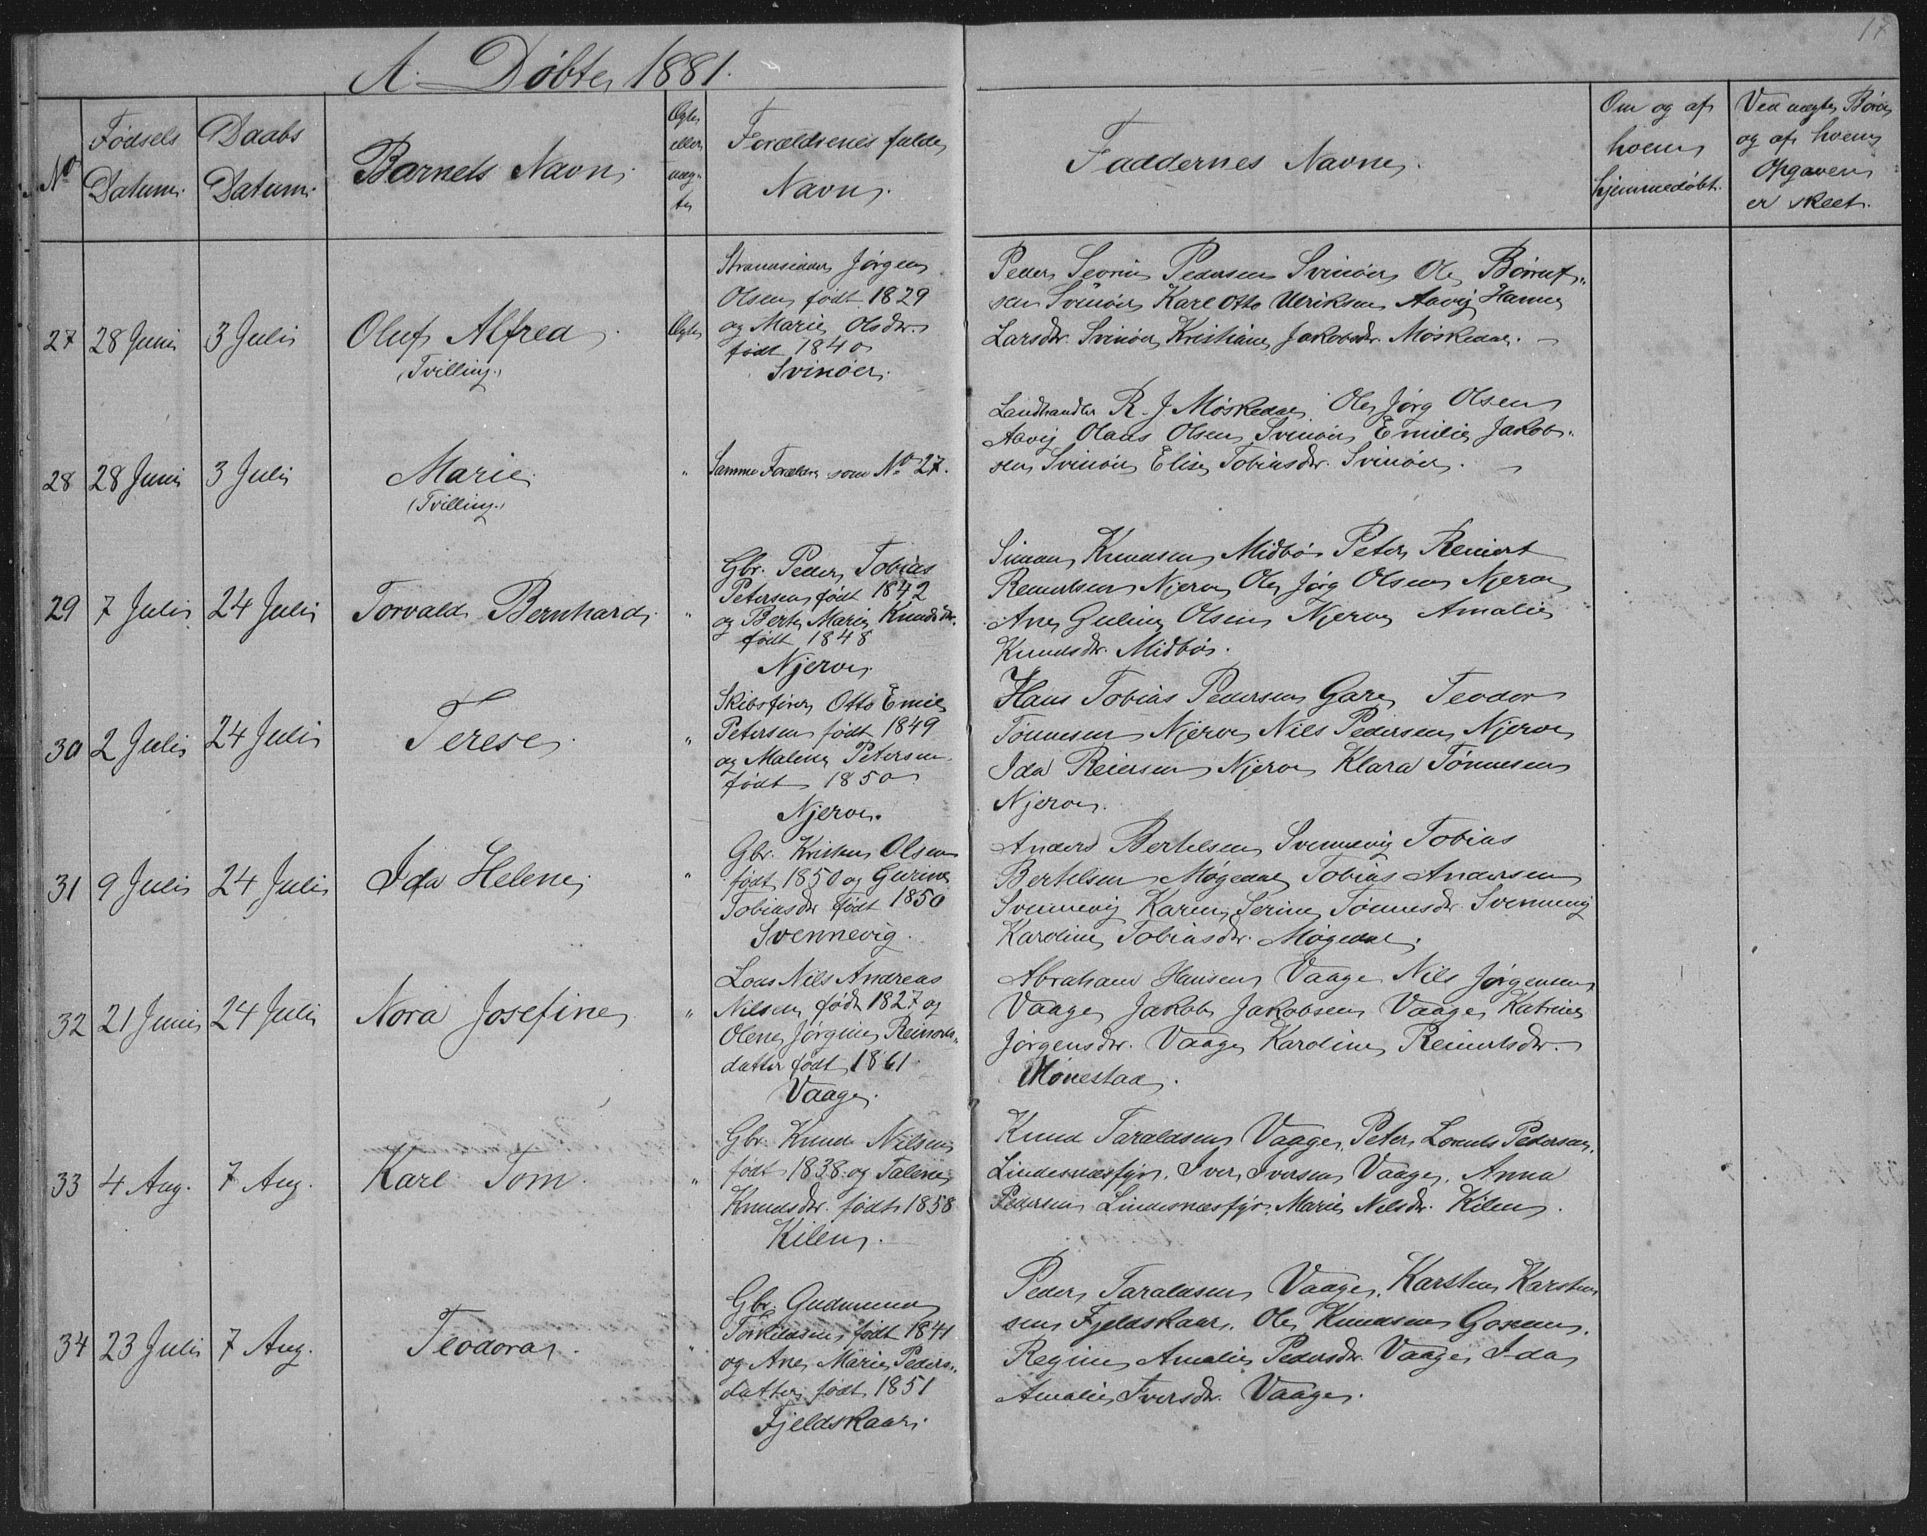 17
A. Døbte 1881.
No
Fødsels Datum.
Daabs Datum.
Barnets Navn.
Ægte eller uægte
Forældrenes fulde Navn.
Faddernes Navne.
Om og af hvem hjemmedøbt.
Ved uægte Børn og af hvem Opgaven er skeet.
27 28 Juni 3 Juli Oluf Alfred (Tvilling.) Ægte
Jørgen
Olsen født 1829
og Marie Olsdr.
født 1840
Svinøer.
Peder Severin Pedersen Svinøer Ole
sen Svinøer Karl Otto Ulriksen Aavig Hanne
Larsdr. Svinøer Kristiane Jakobsdr. Møskedal.
28 28 Juni 3 Juli Marie. (Tvilling.) "
Samme Forældre som No 27.
Landhandler R. J. Møskedal Ole Jørg Olsen
Aavig Olaus Olsen Svinøer Emilie Jakob-
sen Svinøer Elise Tobiasdr. Svinøer.
29 7 Juli 24 Juli Torvald Bernhard. "
Gbr. Peder Tobias
Petersen født 1842
og Berte Marie Knudsdr.
født 1848
Njerve.
Simon Knudsen Midbø Peter Reinert
Reinertsen Njerve Ole Jørg Olsen Njerve
Ane Guline Olsen Njerve Amalie
Knudsdr. Midbø.
30 2 Juli 24 Juli Terese. "
Skibsfører Otto Emil
Petersen født 1849
og Malene Petersen
født 1850
Njerve.
Hans Tobias Pedersen Gare Teodor
Tønnesen Njerve Nils Pedersen Njerve
Ida Reiersen Njerve Klara Tønnesen
Njerve.
31 9 Juli 24 Juli Ida Helene. "
Gbr. Kristen Olsen
født 1850 og Gurine
Tobiasdr født 1850
Svennevig.
Anders Bertelsen Svennevig Tobias
Bertelsen Møgedal Tobias Andersen
Svennevig Karen Serine Tønnesdr. Svennevig
Karoline Tobiasdr. Møgedal.
32 21 Juni 24 Juli Nora Josefine "
Lods Nils Andreas
Nilsen født 1827 og
Olene Jørgine Reinerts-
datter født 1861
Vaage.
Abraham Hansen Vaage Nils Jørgensen
Vaage Jakob Jakobsen Vaage Katrine
Jørgensdr. Vaage Karoline Reinertsdr.
33 4 Aug. 7 Aug. Karl Tom. "
Gbr. Knud Nilsen
født 1838 og Talene
Knudsdr. født 1858
Kilen.
Knud Taraldsen Vaage, Peter Lorents Pedersen,
Lindesnæsfyr. Iver Iversen Vaage, Anna
Pedersen Lindesnæsfyr. Marie Nilsdr. Kilen.
34 23 Juli 7 Aug. Teodora. "
Gbr. Gudmund
Torkildsen født 1841
og Ane Marie Peders-
datter født 1851
Fjeldskaar.
Peder Taraldsen Vaage, Karsten Karsten-
sen Fjeldskaar, Ole Knudsen
Regine Amalie Pedersdr. Vaage, Ida
Amalie Iversdr. Vaage.